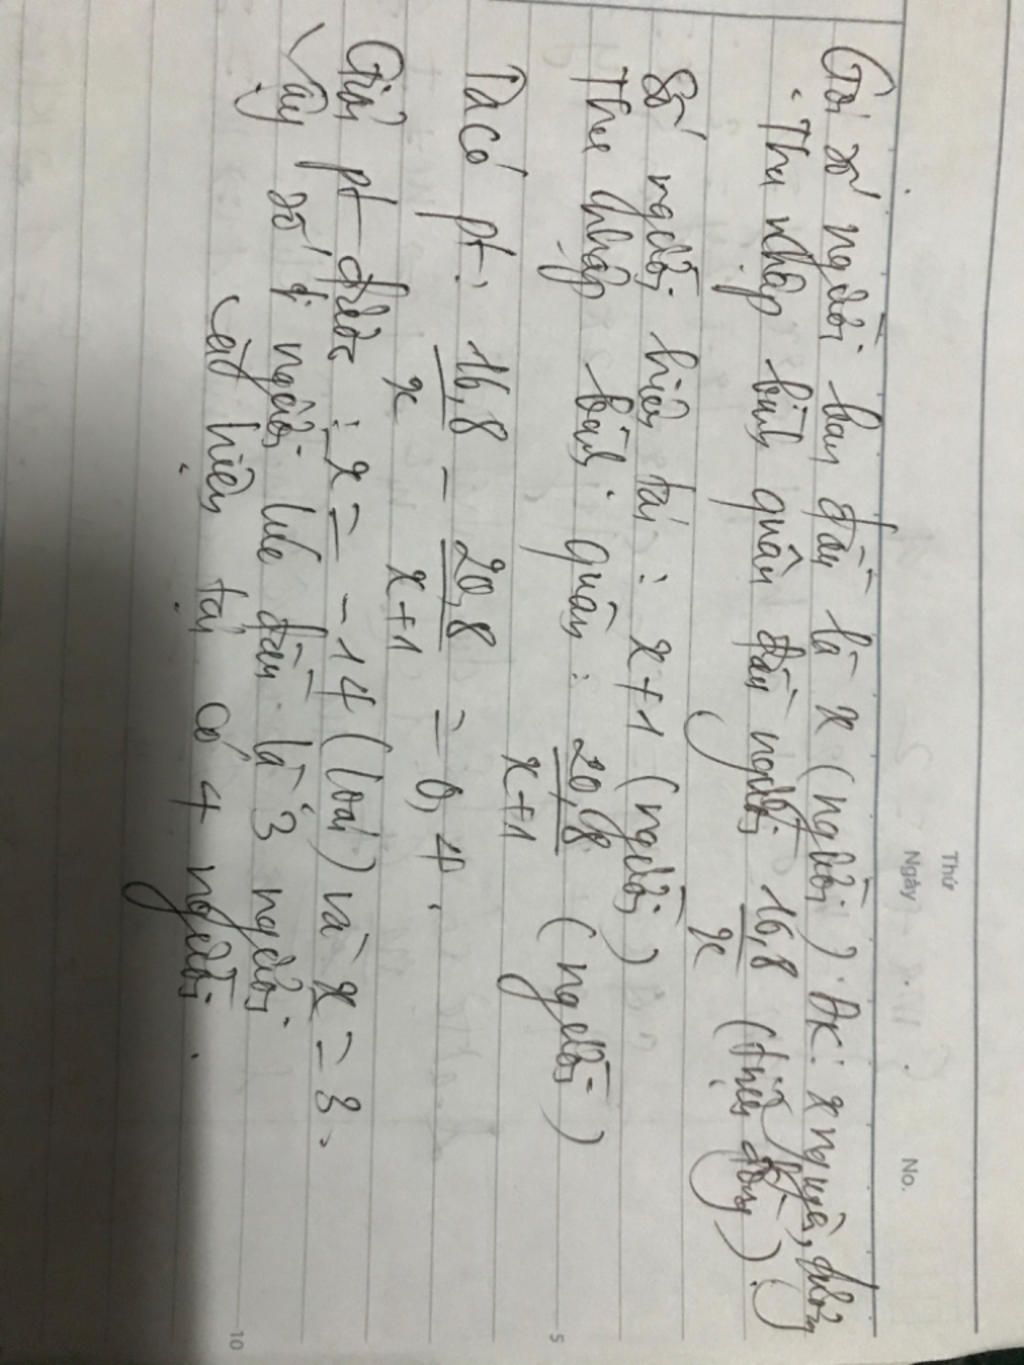 Thứ
Ngày
No.
Gọi số người ban đầu là x (người). ĐK: x nguyên, dương
Thu nhập bình quân đầu người 16,8/x (triệu đồng).
Số người hiện tại : x+1 (người)
Thu nhập bình quân : 20,8/x+1 (người)
Ta có pt : 16,8/x - 20,8/x+1 = 0,4.
Giải pt được : x = -14 (loại) và x = 3.
Vậy số người lúc đầu là 3 người.
Vậy hiện tại có 4 người.
5
10